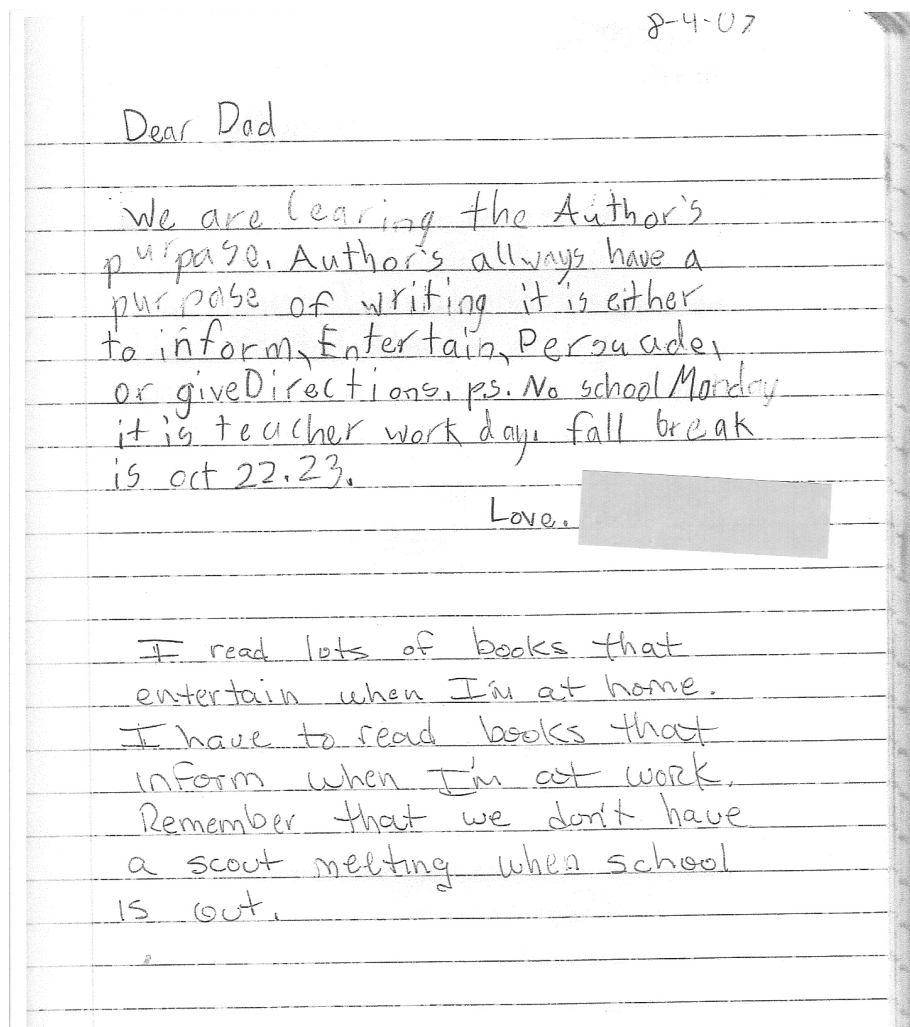 8-4-07
Dear Dad
We are learing the Author's
purpase. Author's allways have a
purpose of writing it is either
to inform, Entertain, Persuade,
or give Directions, ps. No school Monday
it is teacher work day. fall break
is oct 22.23.
Love.
I read lots of books that
entertain when I'm at home.
I have to read books that
inform when I'm at work.
Remember that we don't have
a scout meeting when school
is out.